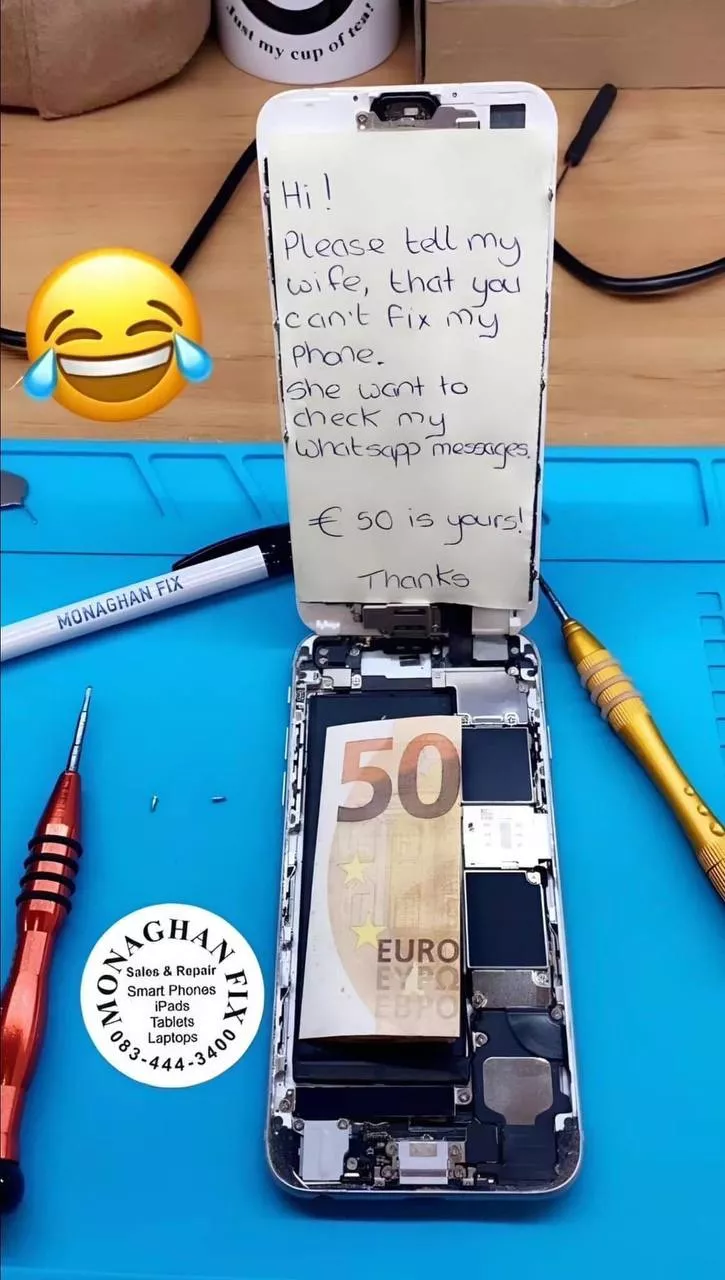 Just my cup of tea!
Hi!
Please tell my
wife, that you
can't fix my
phone.
She want to
check my
Whatsapp messages.
€ 50 is yours!
Thanks
MONAGHAN FIX
50
EURO
ΕΥΡΩ
ЕВРО
MONAGHAN FIX
Sales & Repair
Smart Phones
iPads
Tablets
Laptops
083-444-3400